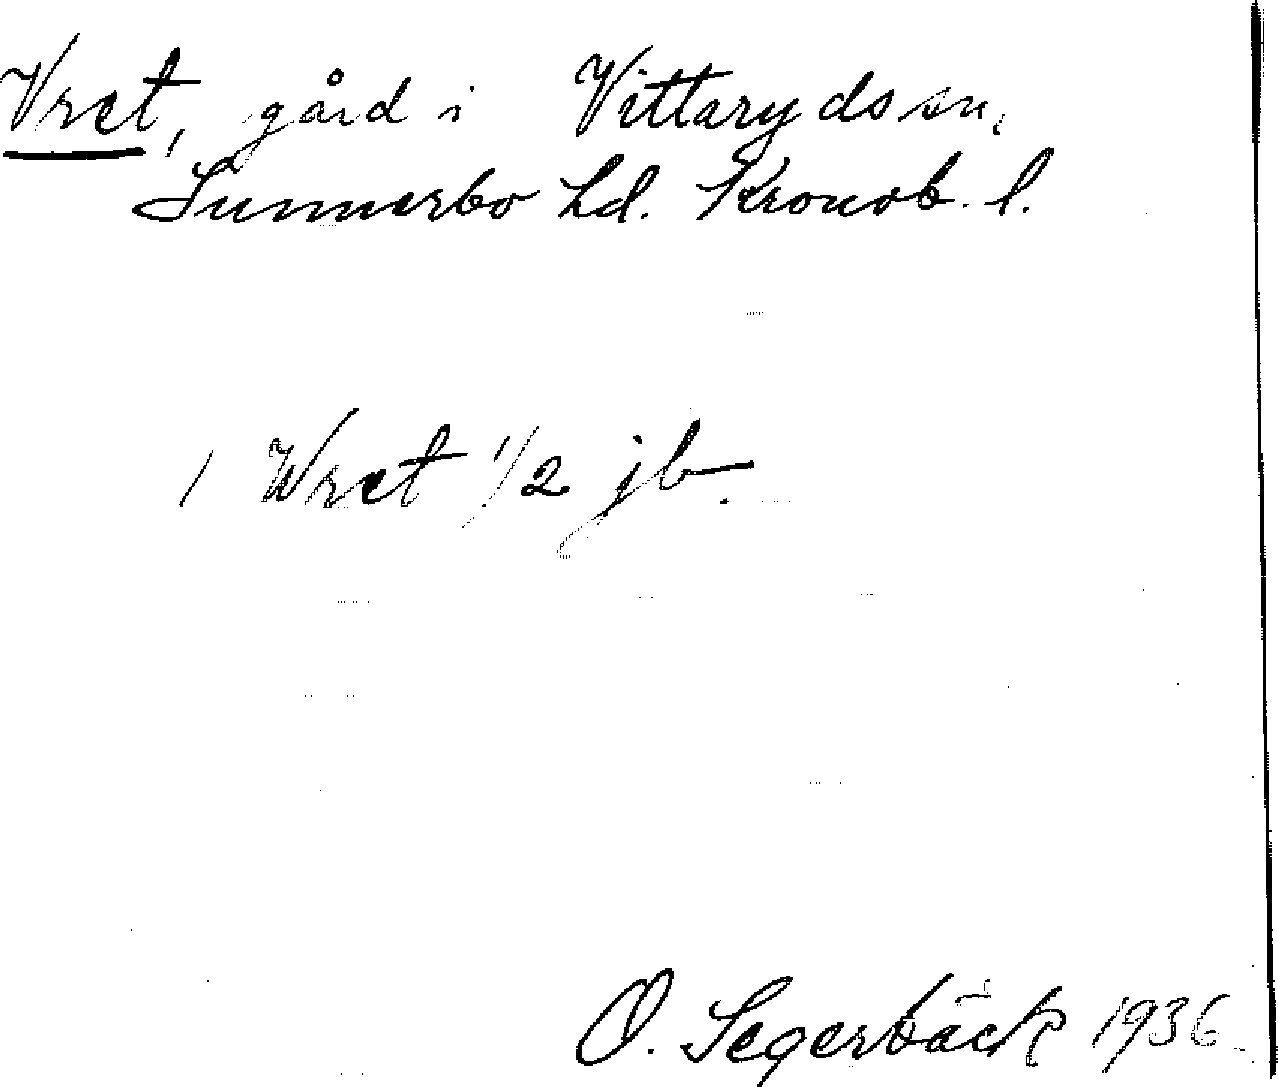 Vret, gård i Vittaryds sn,
Sunnerbo hd. Kronob. l.
1 Wret 1/2 jb.
O. Segerbäck 1936